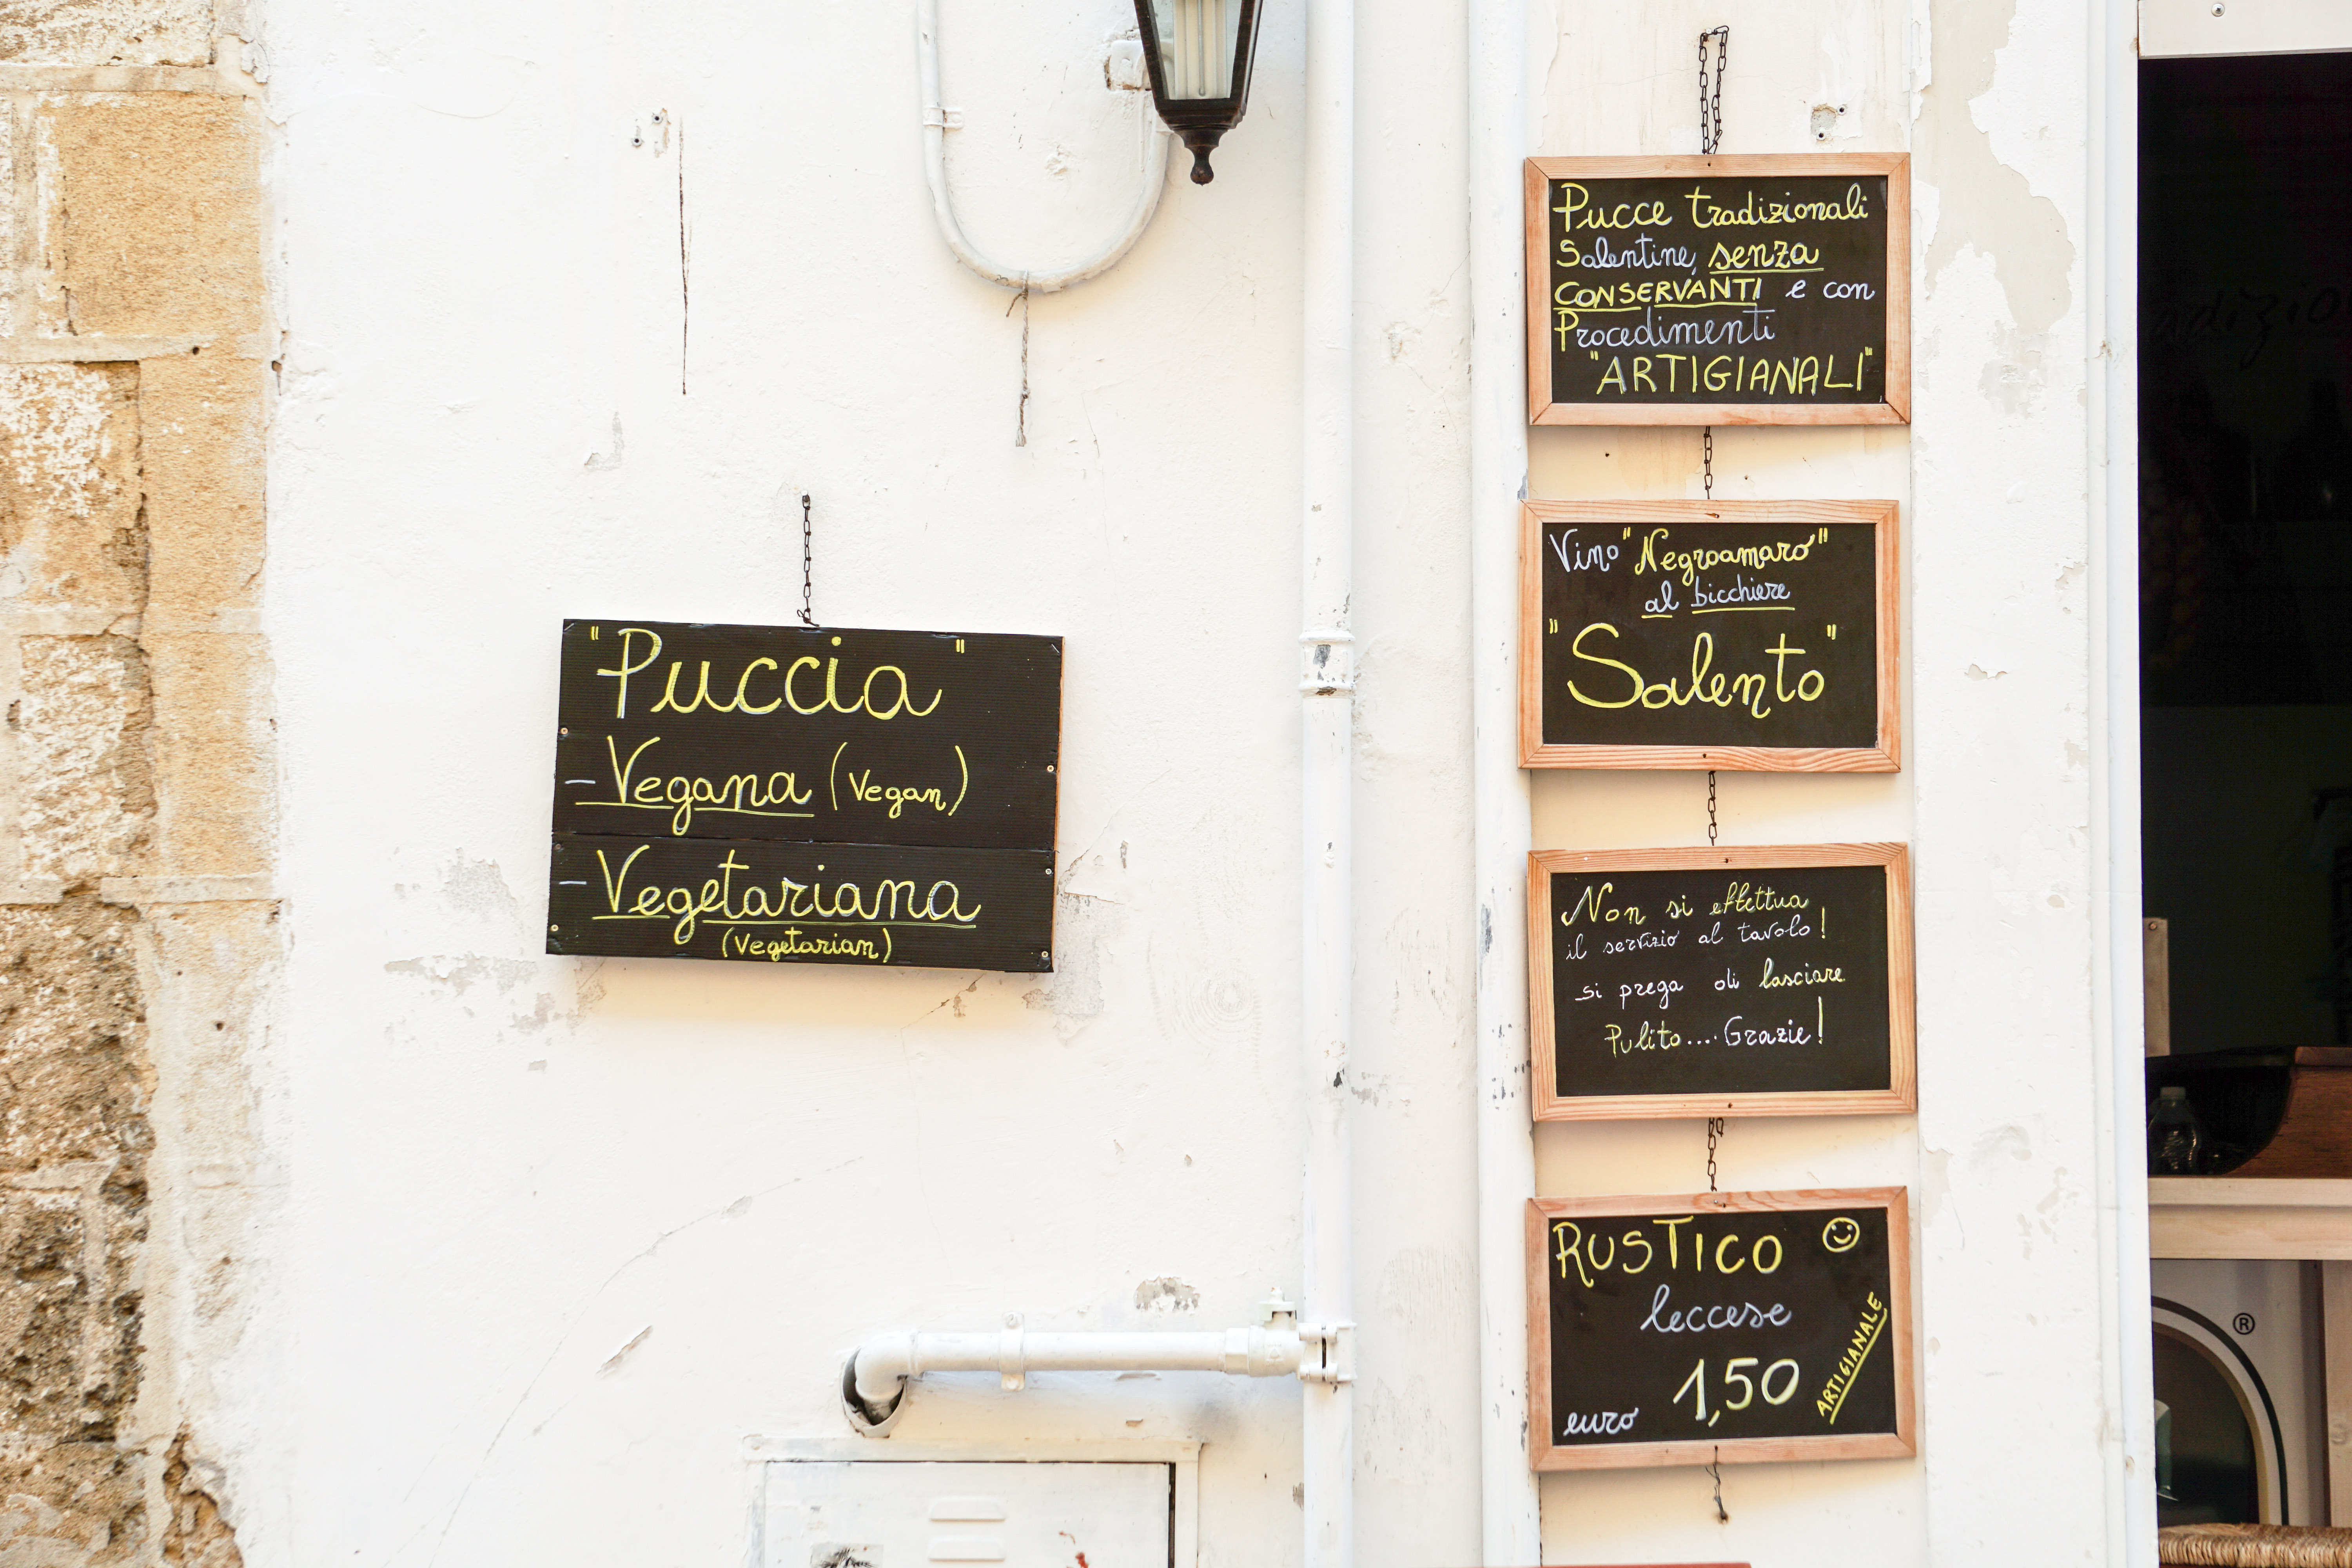 "Puccia"
- Vegana (Vegan)
- Vegetariana
(Vegetarian)
Pucce tradizionali
Salentine, senza
CONSERVANTI e con
Procedimenti
"ARTIGIANALI"
Vino "Negroamaro"
al bicchiere
"Salento"
Non si effettua
il servizio al tavolo!
si prega di lasciare
Pulito.... Grazie!
RUSTICO
leccese
euro 1,50
ARTIGIANALE
®